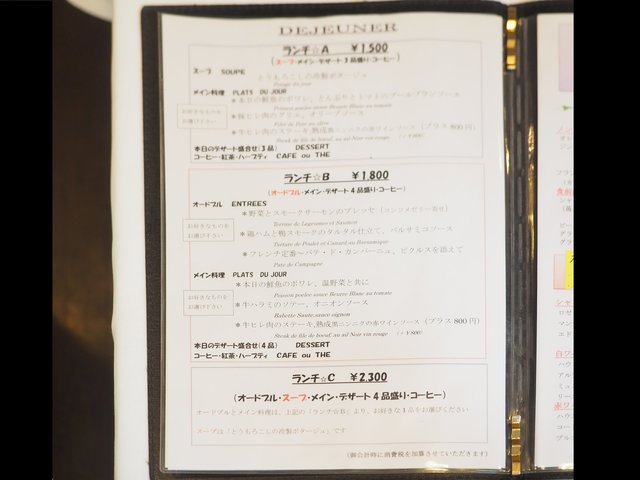 DEJEUNER
ランチ☆A ￥1,500
(スープ・メイン・デザート3品盛り・コーヒー)
スープ SOUPE
とうもろこしの冷製ポタージュ
Potage du jour
メイン料理 PLATS DU JOUR
お好きなものを
お選び下さい
＊本日の鮮魚のポワレ、とんぶりとトマトのブールブランソース
Poisson poelee sauce Beurre Blanc au tomate
＊豚ヒレ肉のグリエ、オリーブソース
Filet de Porc au olive
＊牛ヒレ肉のステーキ,熟成黒ニンニクの赤ワインソース (プラス800円)
Steak de file de boeuf, au ail Noir vin rouge (+￥800)
本日のデザート盛合せ(3品) DESSERT
コーヒー・紅茶・ハーブティ CAFE ou THE
ランチ☆B ￥1,800
(オードブル・メイン・デザート4品盛り・コーヒー)
オードブル ENTREES
お好きなものを
お選び下さい
＊野菜とスモークサーモンのプレッセ (コンソメゼリー寄せ)
Terrine de Legeumes et Saumon
＊鶏ハムと鴨スモークのタルタル仕立て、バルサミコソース
Tartare de Poulet et Canard au Barsamique
＊フレンチ定番～パテ・ド・カンパーニュ、ピクルスを添えて
Pate de Campagne
メイン料理 PLATS DU JOUR
お好きなものを
お選び下さい
＊本日の鮮魚のポワレ、温野菜と共に
Poisson poelee sauce Beurre Blanc au tomate
＊牛ハラミのソテー、オニオンソース
Babette Saute,sauce oignon
＊牛ヒレ肉のステーキ,熟成黒ニンニクの赤ワインソース (プラス800円)
Steak de file de boeuf, au ail Noir vin rouge (+￥800)
本日のデザート盛合せ(4品) DESSERT
コーヒー・紅茶・ハーブティ CAFE ou THE
ランチ☆C ￥2,300
(オードブル・スープ・メイン・デザート4品盛り・コーヒー)
オードブルとメイン料理は、上記の「ランチ☆B」より、お好きな1品をお選びください
スープは「とうもろこしの冷製ポタージュ」です
(御会計時に消費税を加算させていただきます)